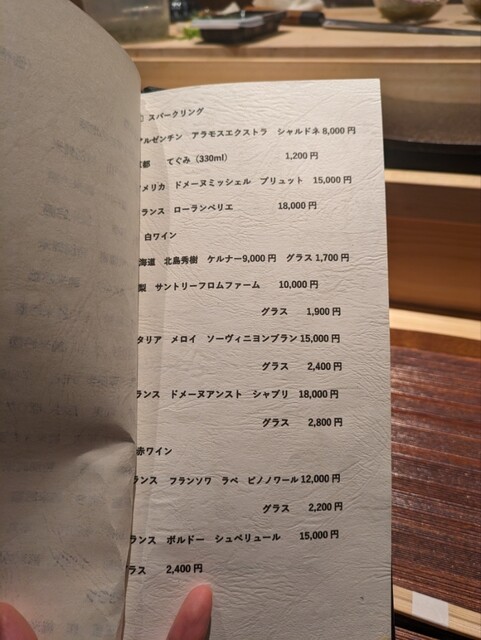 スパークリング
ルゼンチン アラモスエクストラ シャルドネ 8,000 円
都 てぐみ (330ml) 1,200 円
メリカ ドメーヌミッシェル ブリュット 15,000 円
ランス ローランペリエ 18,000 円
白ワイン
海道 北島秀樹 ケルナー9,000 円 グラス 1,700 円
梨 サントリーフロムファーム 10,000 円
グラス 1,900 円
タリア メロイ ソーヴィニヨンブラン 15,000 円
グラス 2,400 円
ランス ドメーヌアンスト シャブリ 18,000 円
グラス 2,800 円
赤ワイン
ランス フランソワ ラベ ピノノワール 12,000 円
グラス 2,200 円
ランス ボルドー シュペリュール 15,000 円
グラス 2,400 円